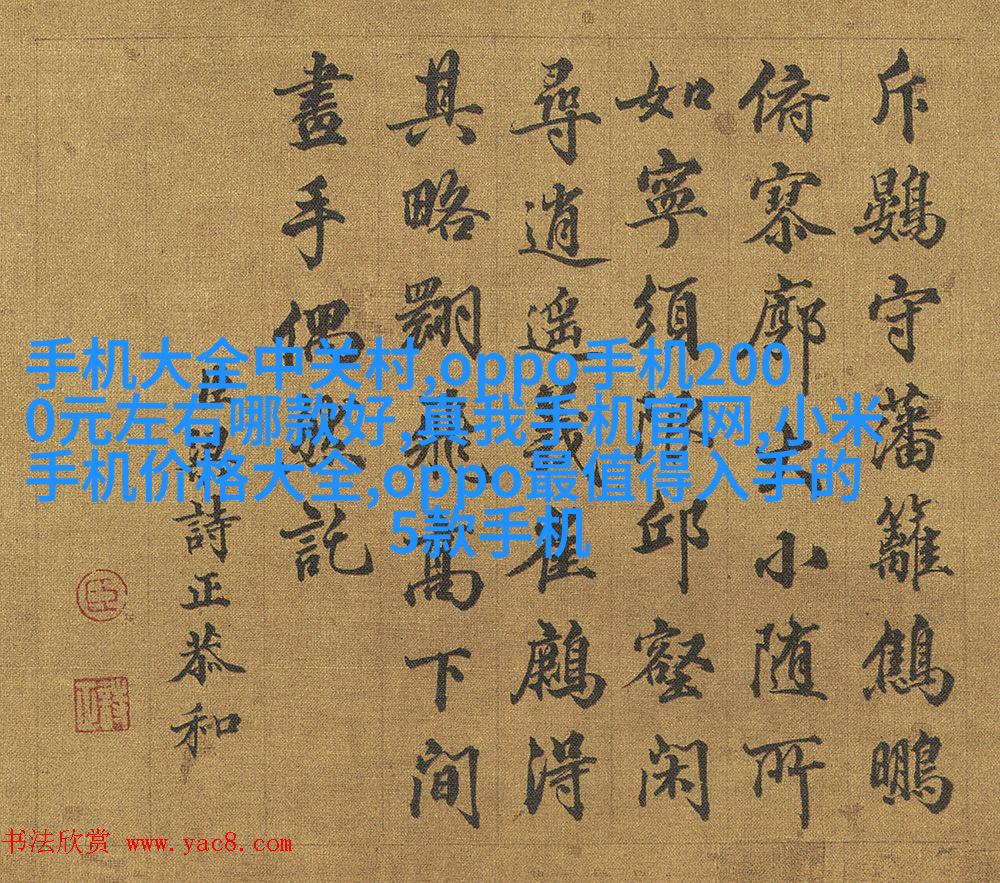 斥鷃守藩籬鷦鵬
俯寥廓小随所
如寧須邱壑閑
尋逍遥義崔得
其略翾飛高下間
畫手偶託
臣詩正恭和
手机大全中关村,oppo手机200
0元左右哪款好,真我手机官网,小米
手机价格大全,oppo最值得入手的
5款手机
书法欣赏 www.yac8.com